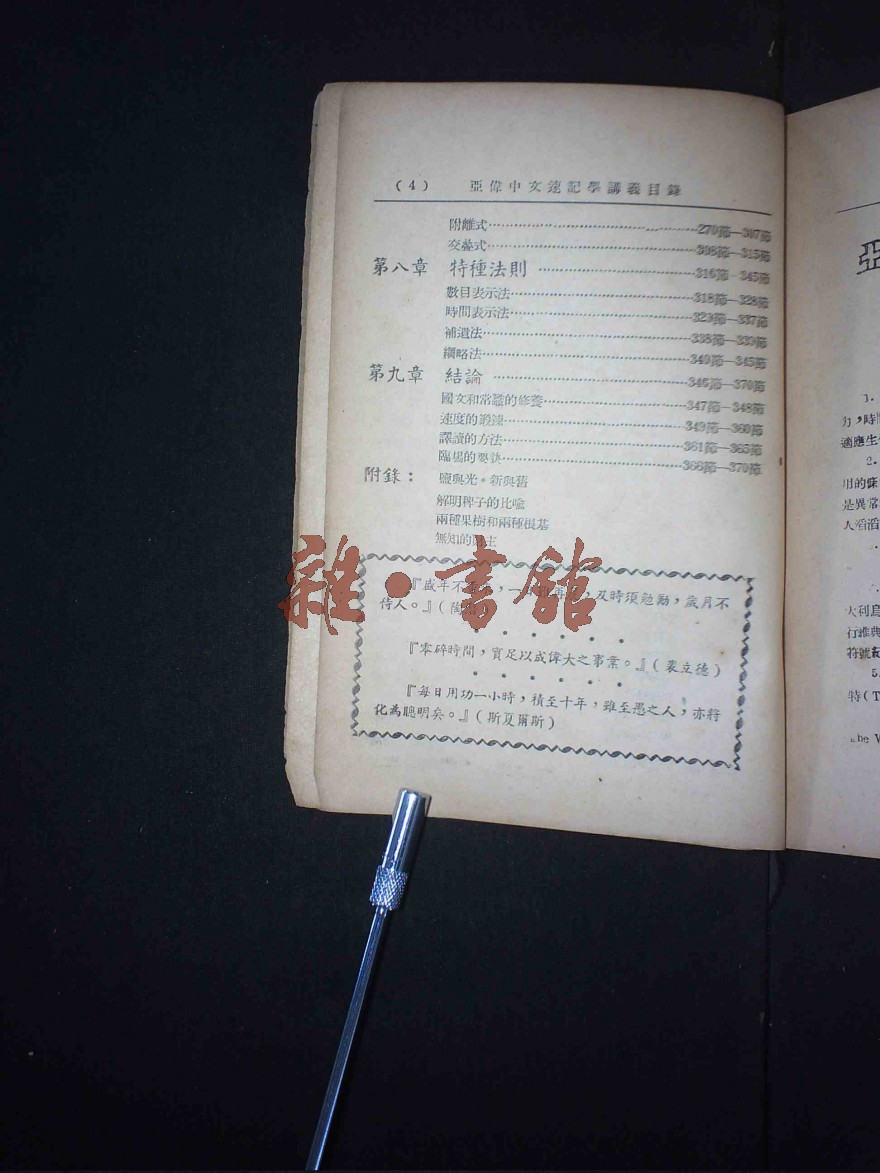 (4) 亞偉中文速記學講義目錄
附離式……270節—307節
交叠式……308節—315節
第八章 特種法則……316節—345節
數目表示法……318節—328節
時間表示法……329節—337節
補遺法……338節—339節
綱略法……340節—345節
第九章 結論……346節—370節
國文和常識的修養……347節—348節
速度的鍛鍊……349節—360節
譯讀的方法……361節—365節
臨場的要訣……366節—370節
附錄： 鹽與光。新與舊
解明稗子的比喻
兩種果樹和兩種根基
無知的
『盛年不，一，及時須勉勵，歲月不
待人。』(陶
『零碎時間，實足以成偉大之事業。』(裴立德)
『每日用功一小時，積至十年，雖至愚之人，亦將
化為聰明矣。』(斯夏爾斯)
雜·書館
亞
1.
力，時間
適應生
2.
用的
是異常
人滔滔
大利
行雅典
符號
5.
特(T
he W